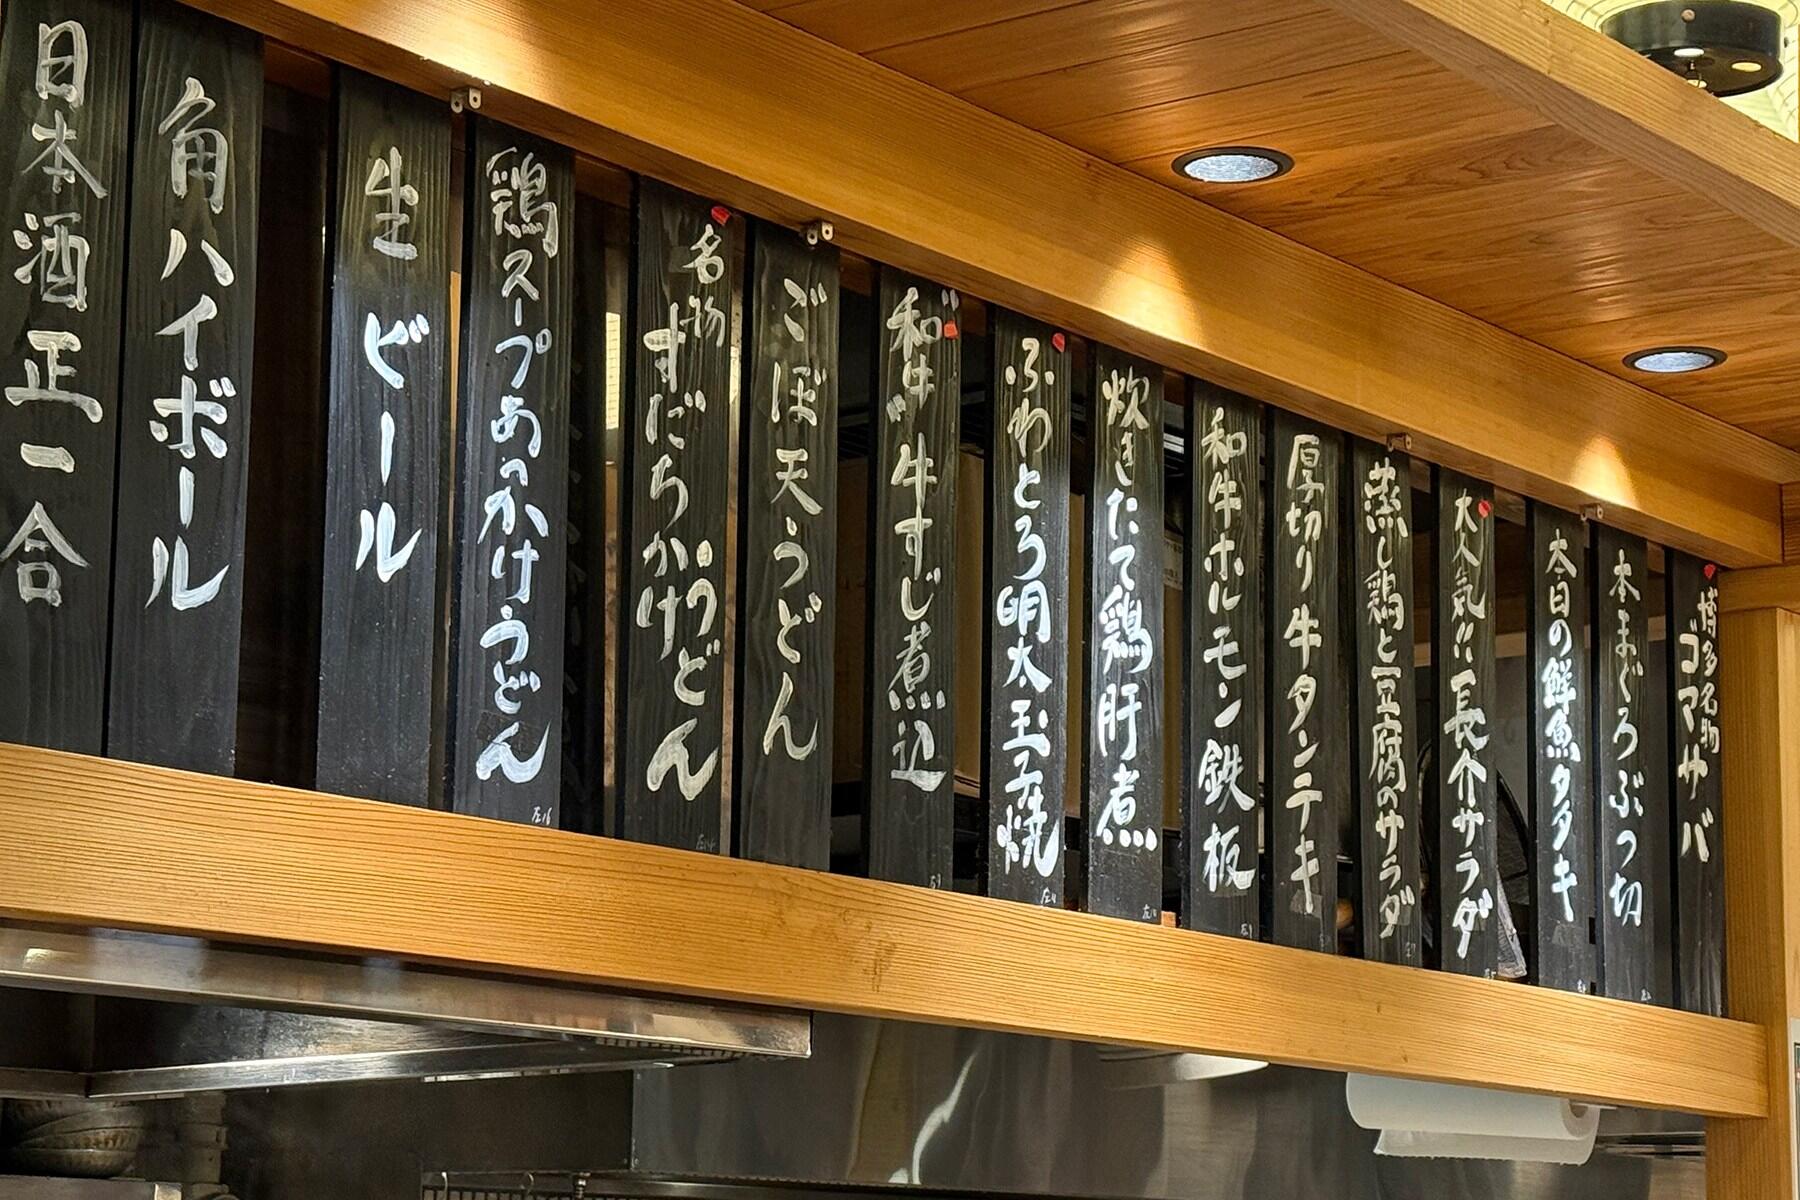 博多名物
ゴマサバ
本まぐろぶつ切
本日の鮮魚タタキ
大人気!!長介サラダ
蒸し鶏と豆腐のサラダ
厚切り牛タンテキ
和牛ホルモン鉄板
炊きたて鶏肝煮
ふわとろ明太玉子焼
"和牛"牛すじ煮込
ごぼ天うどん
名物
すだちかけうどん
鶏スープあつかけうどん
生ビール
角ハイボール
日本酒正一合